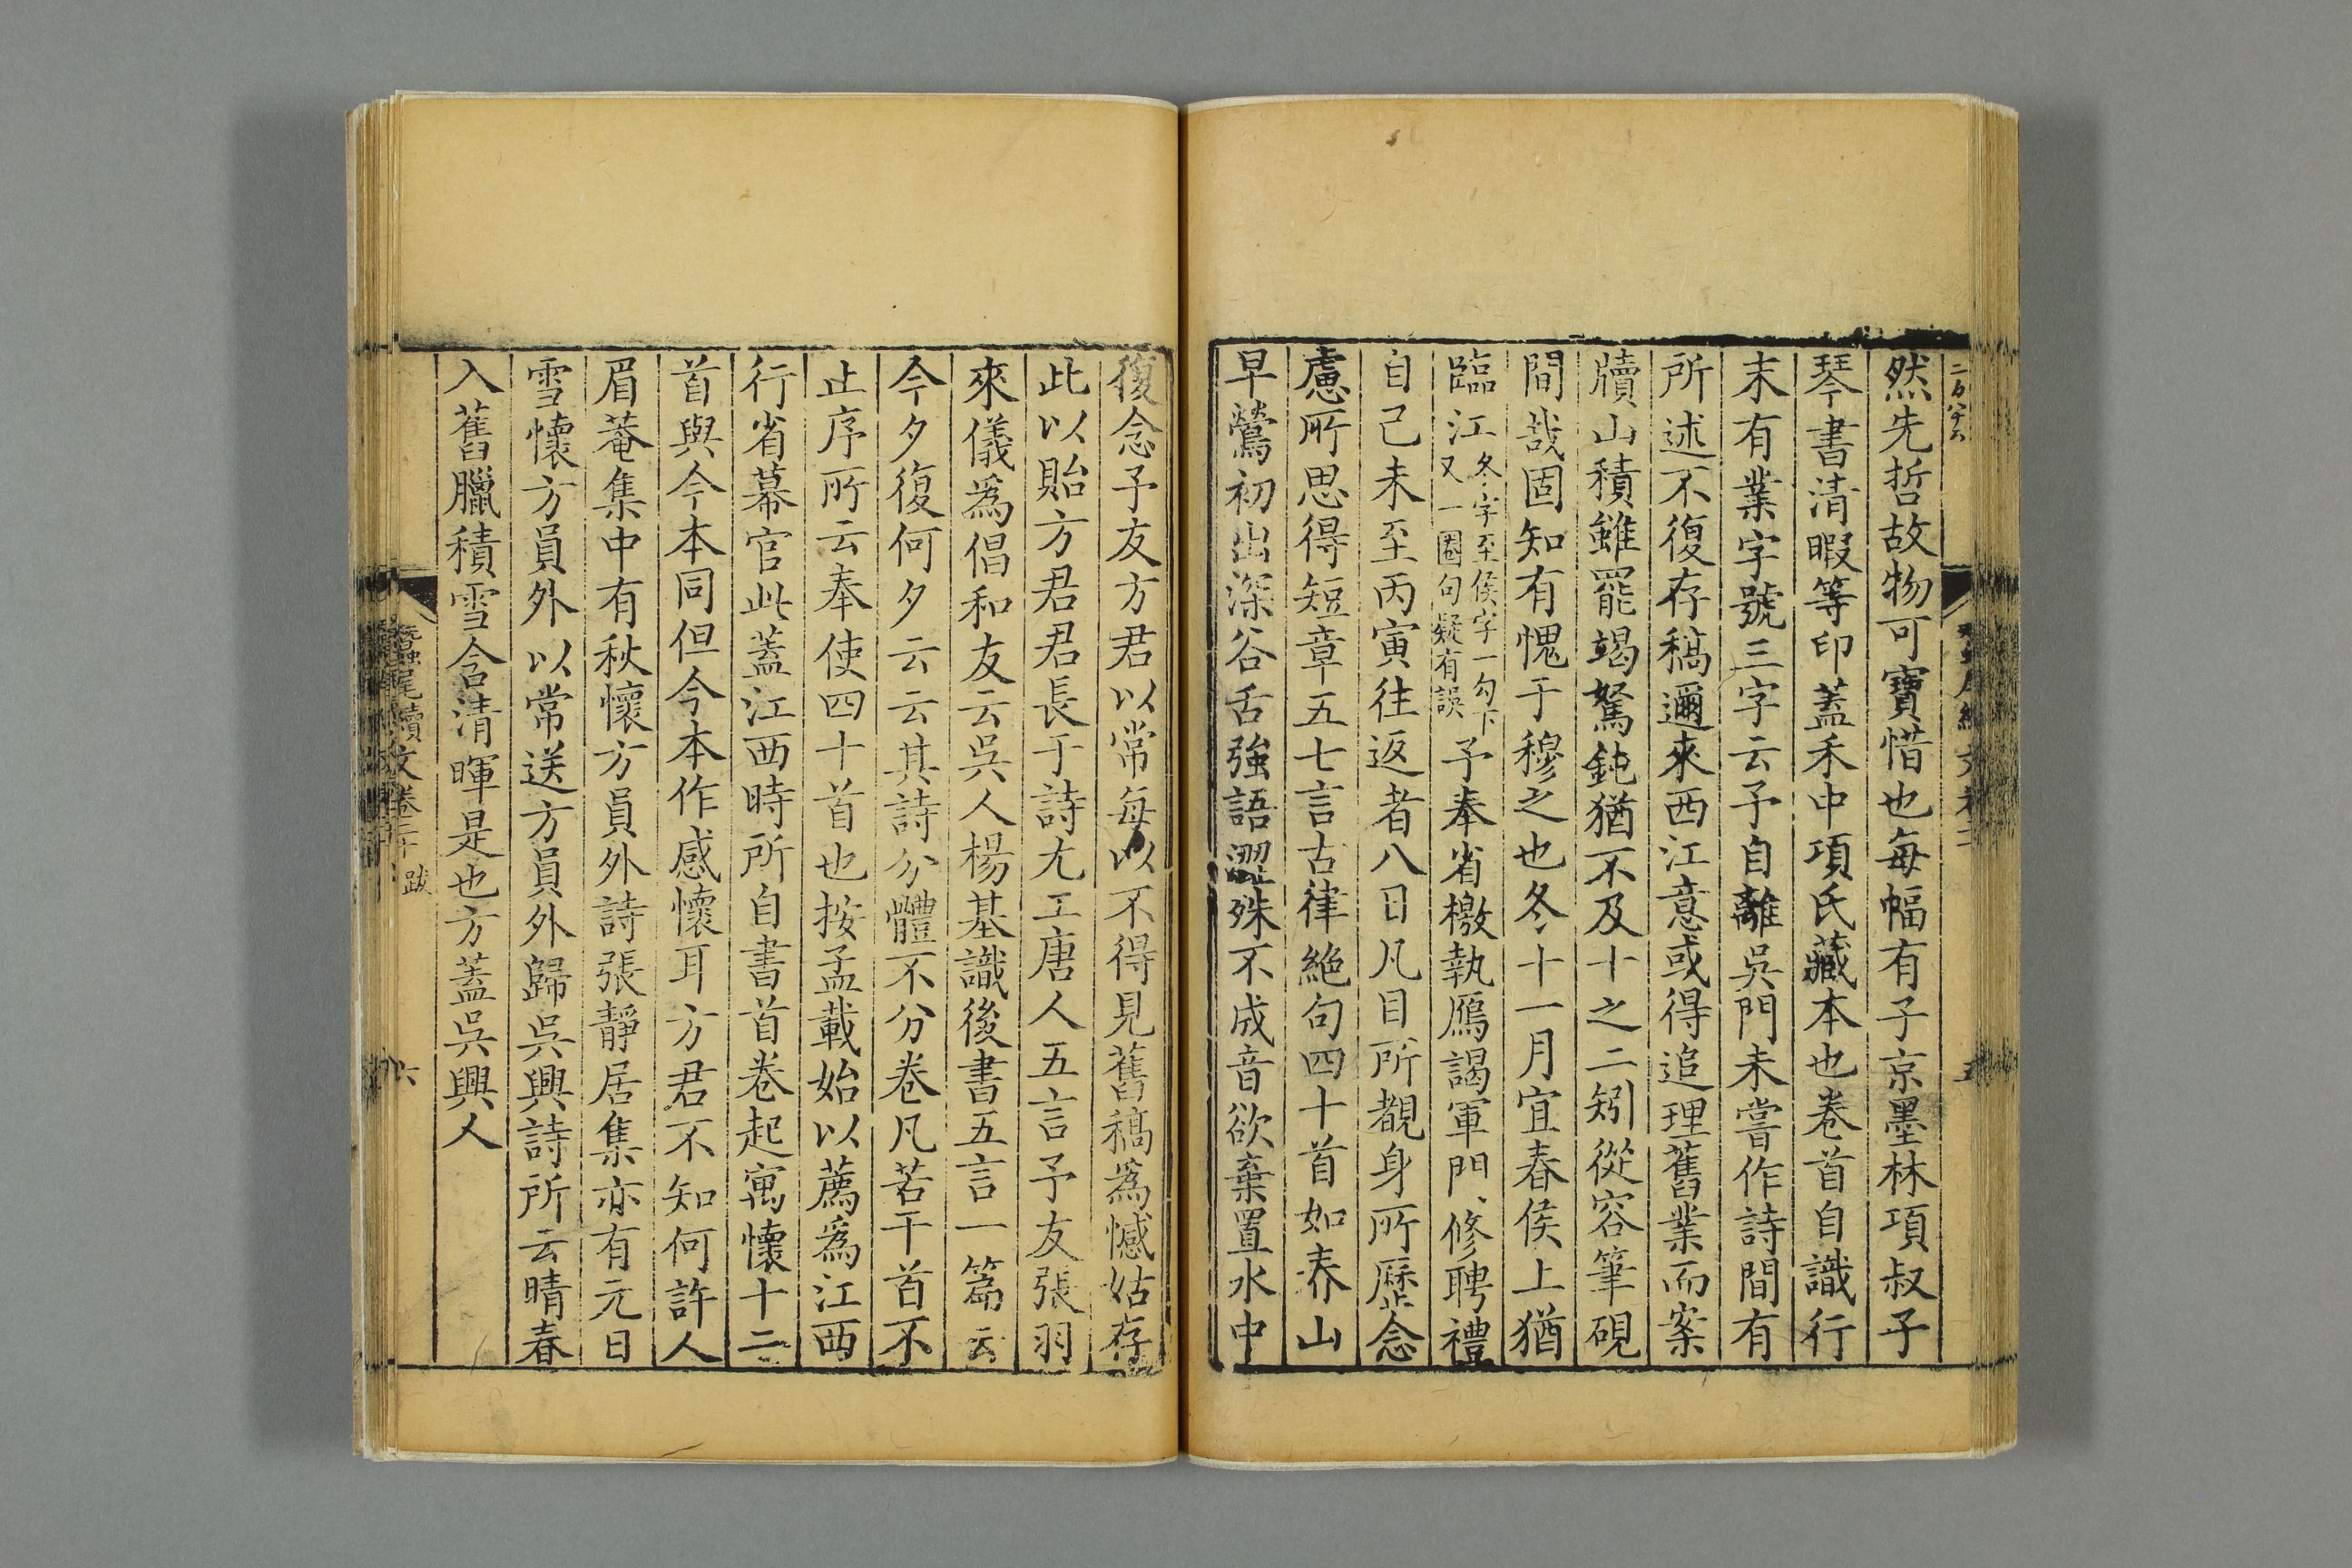 然先哲故物可寶惜也每幅有子京墨林項叔子
琴書清暇等印蓋禾中項氏藏本也卷首自識行
末有業字號三字云予自離吳門未嘗作詩間有
所述不復存稿邇來西江意或得追理舊業而案
牘山積雖罷竭駑鈍猶不及十之二矧從容筆硯
間哉固知有愧于穆之也冬十一月宜春侯上猶
臨江冬字至侯字一勾下又一圈句疑有誤予奉省檄執鴈謁軍門修聘禮
自己未至丙寅往返者八日凡目所覩身所歷念
慮所思得短章五七言古律絶句四十首如春山
早鶯初出深谷舌強語澀殊不成音欲棄置水中
復念予友方君以常每以不得見舊稿為憾姑存
此以貽方君君長于詩尤工唐人五言予友張羽
來儀為倡和友云吳人楊基識後書五言一篇云
今夕復何夕云云其詩分體不分卷凡若干首不
止序所云奉使四十首也按孟載始以薦爲江西
行省幕官此蓋江西時所自書首卷起寓懷十二
首與今本同但今本作感懷耳方君不知何許人
眉菴集中有秋懷方員外詩張靜居集亦有元日
雪懷方員外以常送方員外歸吳興詩所云晴春
入舊臘積雪含清暉是也方蓋吳興人
蠶尾續文卷二十 跋
六